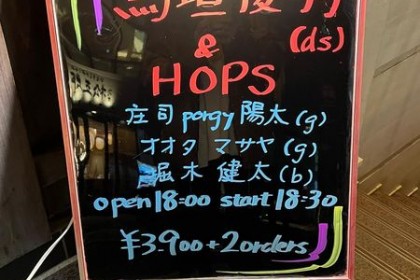 &
(ds)
HOPS
庄司 pongy 陽太 (g)
オオタ マサヤ (g)
堀木 健太 (b)
open 18:00 start 18:30
¥3,900+2orders